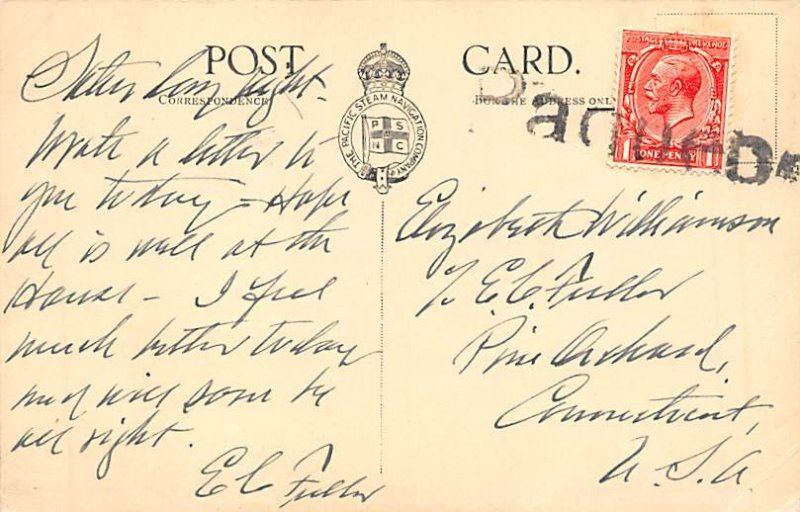 POST CARD.
CORRESPONDENCE
FOR THE ADDRESS ONLY
THE PACIFIC STEAM NAVIGATION COMPANY
P S
N C
POSTAGE REVENUE
ONE PENNY
1 1
Paquebo
Saturday night -
Wrote a letter to
you today - Hope
all is well at the
House - I feel
much better today
and will soon be
all right.
E C Fuller
Elizabeth Williamson
℅ E. C. Fuller
Pine Orchard,
Connecticut,
U.S.A.